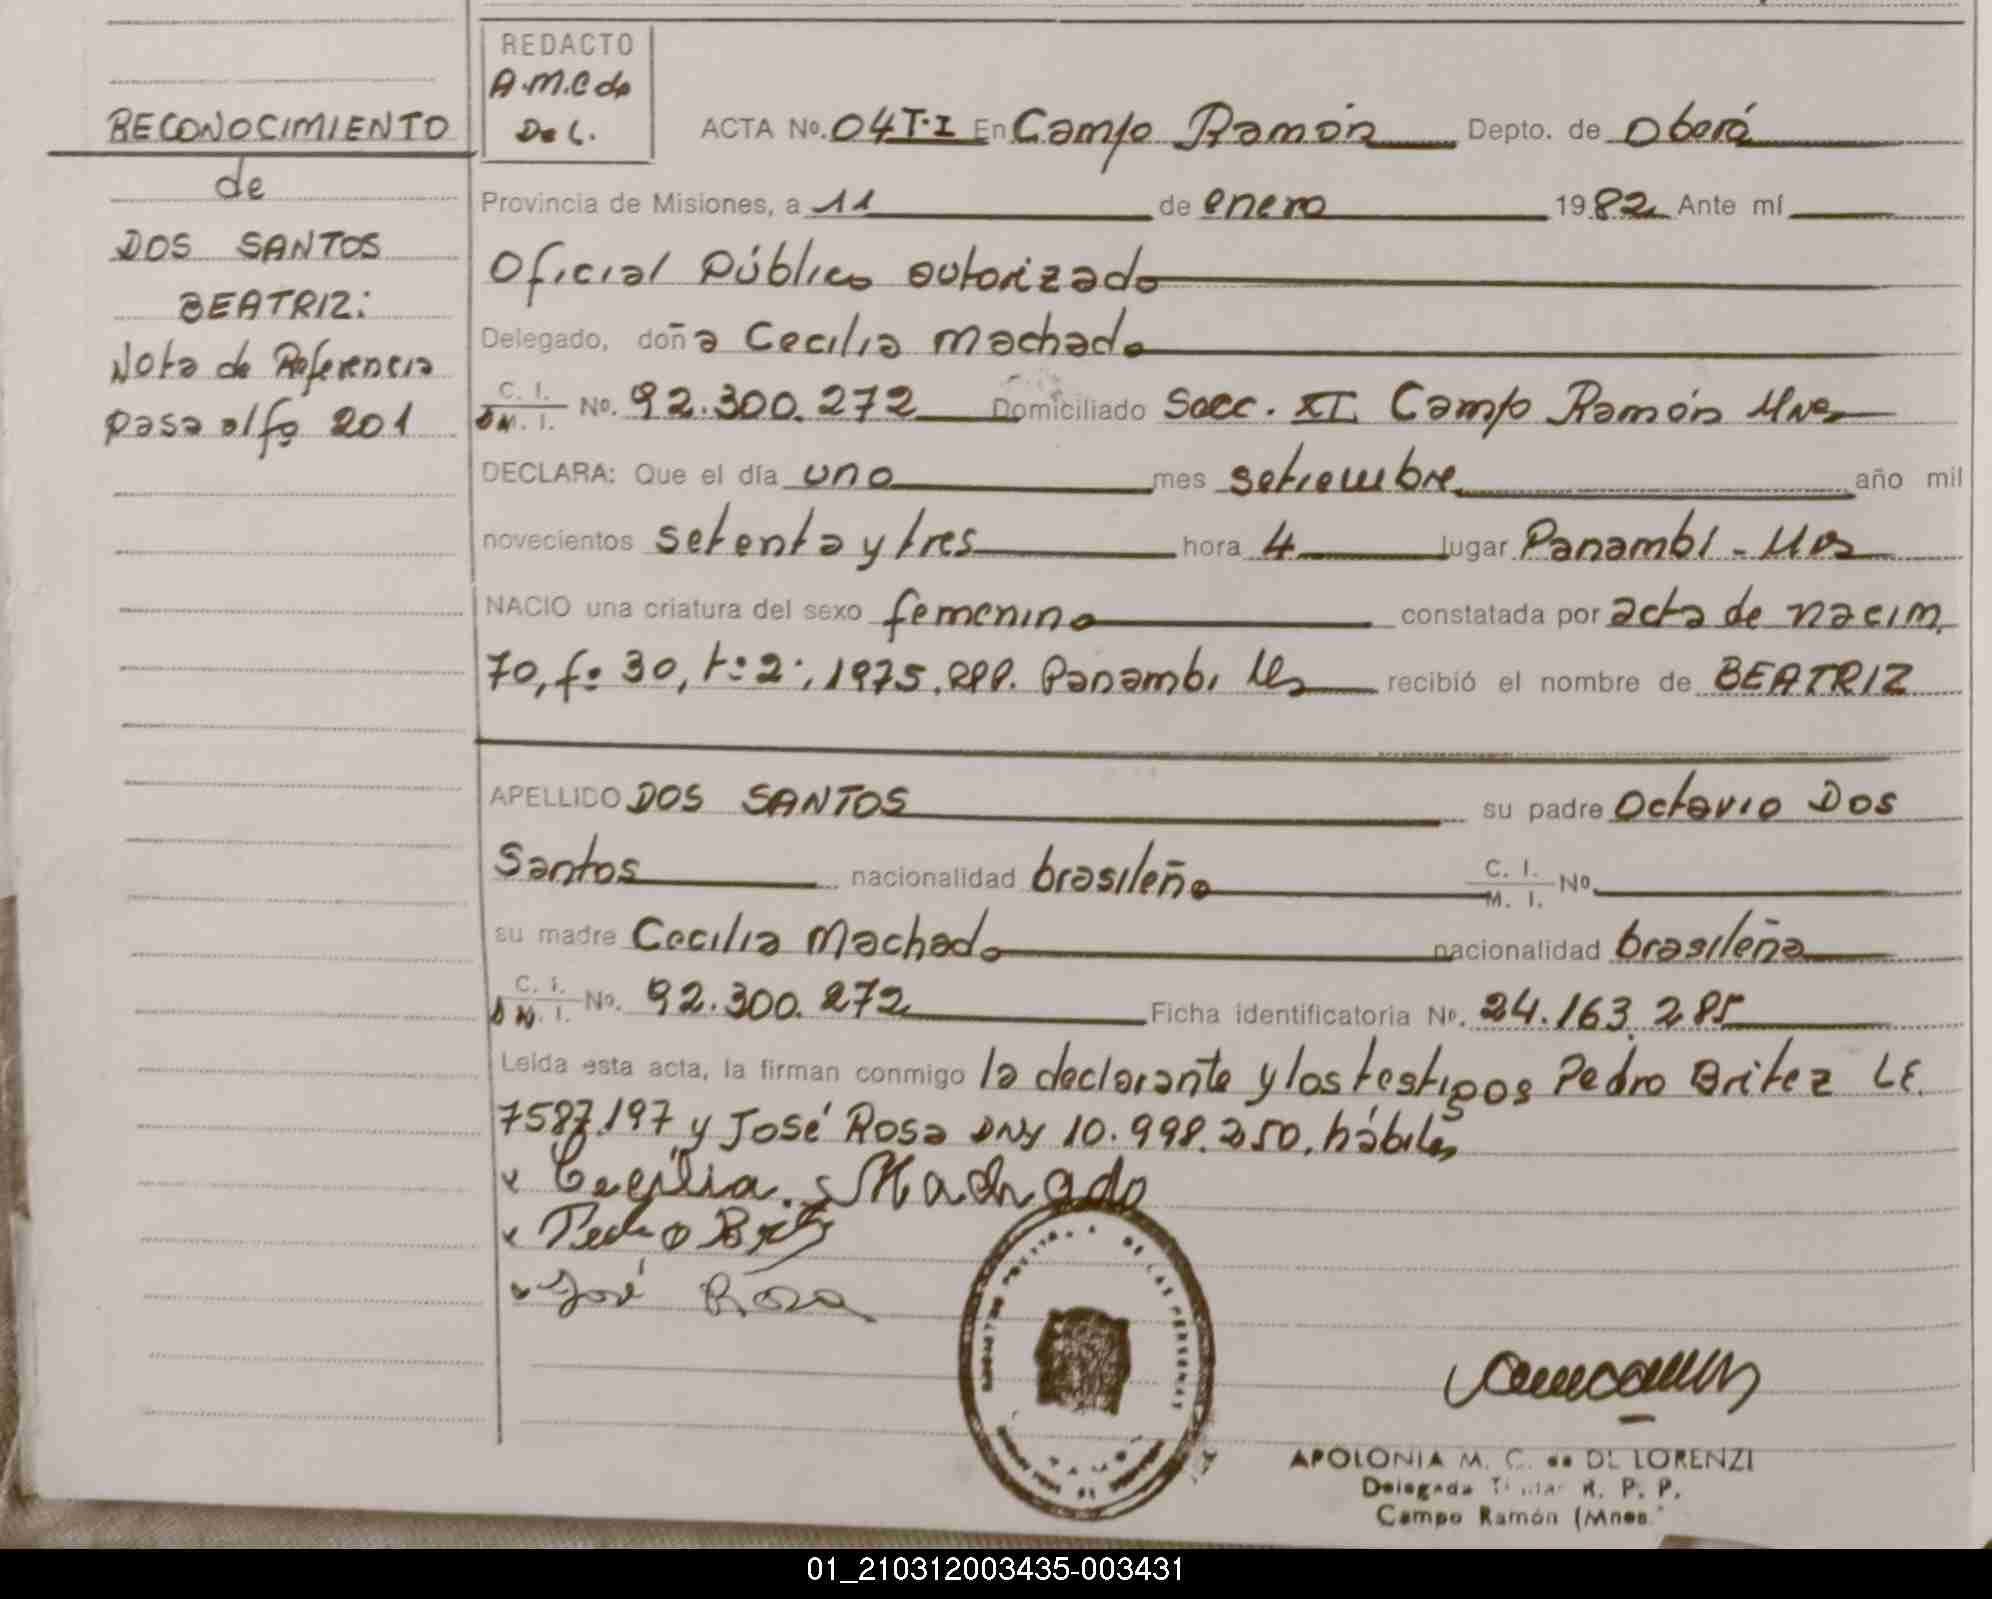 RECONOCIMIENTO
de
DOS SANTOS
BEATRIZ:
Nota de Referencia
pasa al fº 201
REDACTO
A.M.C de
De L.
ACTA No. 04 T·I En Campo Ramón Depto. de Oberá
Provincia de Misiones, a 11 de enero 1982 Ante mí
Oficial Público autorizado
Delegado, doña Cecilia Machado
C. I. D N. I. No. 92.300.272 Domiciliado Secc. XI Campo Ramón Mnes
DECLARA: Que el día uno mes setiembre año mil
novecientos setenta y tres hora 4 lugar Panambí - Mns
NACIO una criatura del sexo femenino constatada por acta de nacim.
70, fº 30, tº 2º, 1975. RPP. Panambí Ms recibió el nombre de BEATRIZ
APELLIDO DOS SANTOS su padre Octavio Dos
Santos nacionalidad brasileño C. I. M. I. No
su madre Cecilia Machado nacionalidad brasileña
C. I. D N. I. No. 92.300.272 Ficha identificatoria No. 24.163.285
Leída esta acta, la firman conmigo la declarante y los testigos Pedro Britez L.E.
7587.197 y José Rosa DNI 10.998.250, hábiles
x Cecilia Machado
x Pedro Britez
x José Rosa
DE LAS PERSONAS
APOLONIA M. C. de DE LORENZI
Delegada Titular R. P. P.
Campo Ramón (Mnes.
01_210312003435-003431